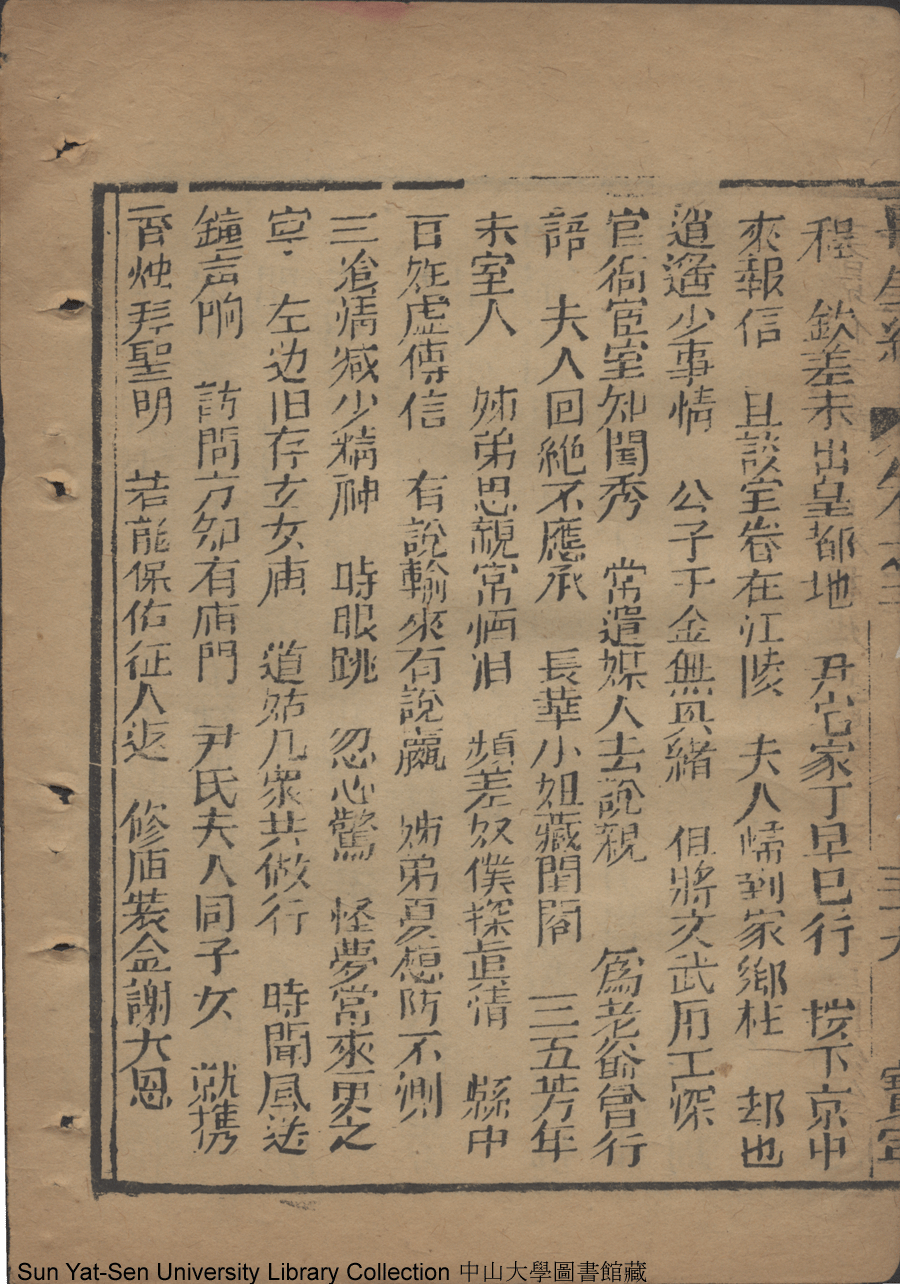 程　欽差未出皇都地　尹宅家丁早已行　按下京中
來報信　且談室眷在江陵　夫人歸到家鄉桂　却也
逍遥少事情　公子千金無異緒　但將文武用工深
官衙宦室知閨秀　常遣媒人去說親　爲老爺曾行
語　夫人回絶不應承　長華小姐藏閨閣　三五芳年
未室人　姊弟思親常洒泪　頻差奴僕探眞情　縣中
百姓虚傳信　有說輸來有說贏　姊弟憂想防不測
三飡情减少精神　時眼跳　忽心驚　怪夢常來更之
寕　左边旧存玄女庙　道姑几衆共做行　時聞風送
鐘声响　訪問方知有庙門　尹氏夫人同子女　就携
香烛拜聖明　若能保佑征人返　修庙裝金謝大恩
再生緣　卷之三　三十九　寶寕
Sun Yat-Sen University Library Collection 中山大學圖書館藏